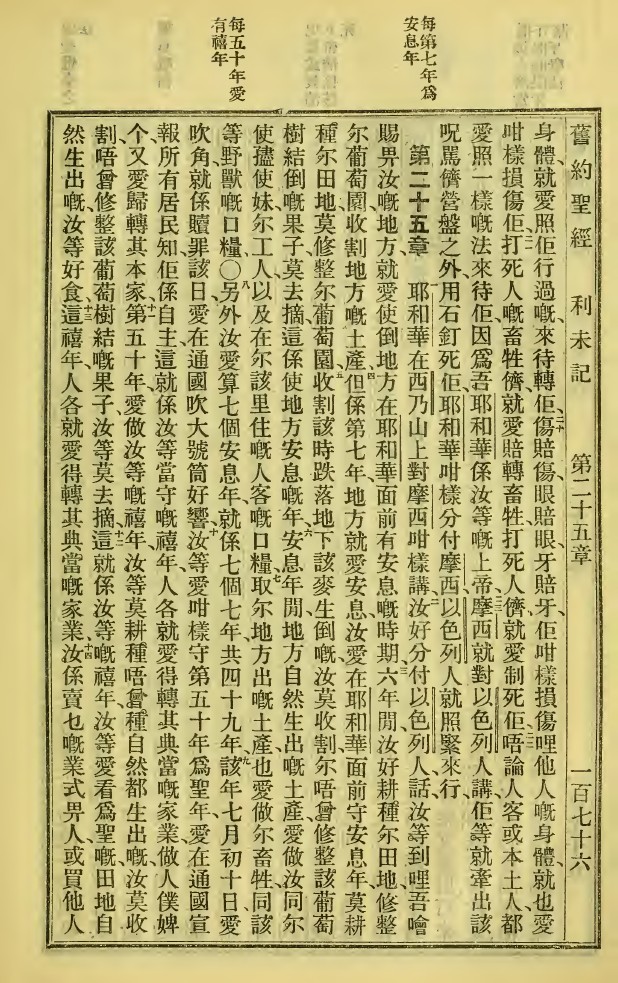 每第七年爲
安息年
每五十年愛
有禧年
舊約聖經 利未記 第二十五章 一百七十六
身體、就愛照佢行過嘅來待轉佢、二十傷賠傷、眼賠眼、牙賠牙、佢咁樣損傷哩他人嘅身體、就也愛
咁樣損傷佢、二一打死人嘅畜牲儕、就愛賠轉畜牲、打死人儕、就愛制死佢、二二唔論人客或本土人、都
愛照一樣嘅法來待佢、因爲吾耶和華係汝等嘅上帝、二三摩西就對以色列人講、佢等就牽出該
呪罵儕營盤之外、用石釘死佢、耶和華咁樣分付摩西、以色列人就照緊來行、
第二十五章 一耶和華在西乃山上對摩西咁樣講、二汝好分付以色列人話、汝等到哩吾噲
賜畀汝嘅地方、就愛使倒地方在耶和華面前有安息嘅時期、三六年閒汝好耕種尔田地、修整
尔葡萄園、收割地方嘅土產、四但係第七年、地方就愛安息、汝愛在耶和華面前守安息年、莫耕
種尔田地、莫修整尔葡萄園、五收割該時跌落地下該麥生倒嘅、汝莫收割、尔唔曾修整該葡萄
樹結倒嘅果子、莫去摘、這係使地方安息嘅年、六安息年閒地方自然生出嘅土產、愛做汝同尔
使孻使妹、尔工人、以及在尔該里住嘅人客嘅口糧、七取尔地方出嘅土產、也愛做尔畜牲同該
等野獸嘅口糧、〇八另外汝愛算七個安息年、就係七個七年、共四十九年、九該年七月初十日、愛
吹角、就係贖罪該日、愛在通國吹大號筒好響、十汝等愛咁樣守第五十年爲聖年、愛在通國宣
報所有居民、知佢係自主、這就係汝等當守嘅禧年、人各就愛得轉其典當嘅家業、做人僕婢
个、又愛歸轉其本家、十一第五十年、愛做汝等嘅禧年、汝等莫耕種、唔曾種自然都生出嘅、汝莫收
割、唔曾修整該葡萄樹結嘅果子、汝等莫去摘、十二這就係汝等嘅禧年、汝等愛看爲聖嘅、田地自
然生出嘅、汝等好食、十三這禧年、人各就愛得轉其典當嘅家業、十四汝係賣乜嘅業式畀人、或買他人